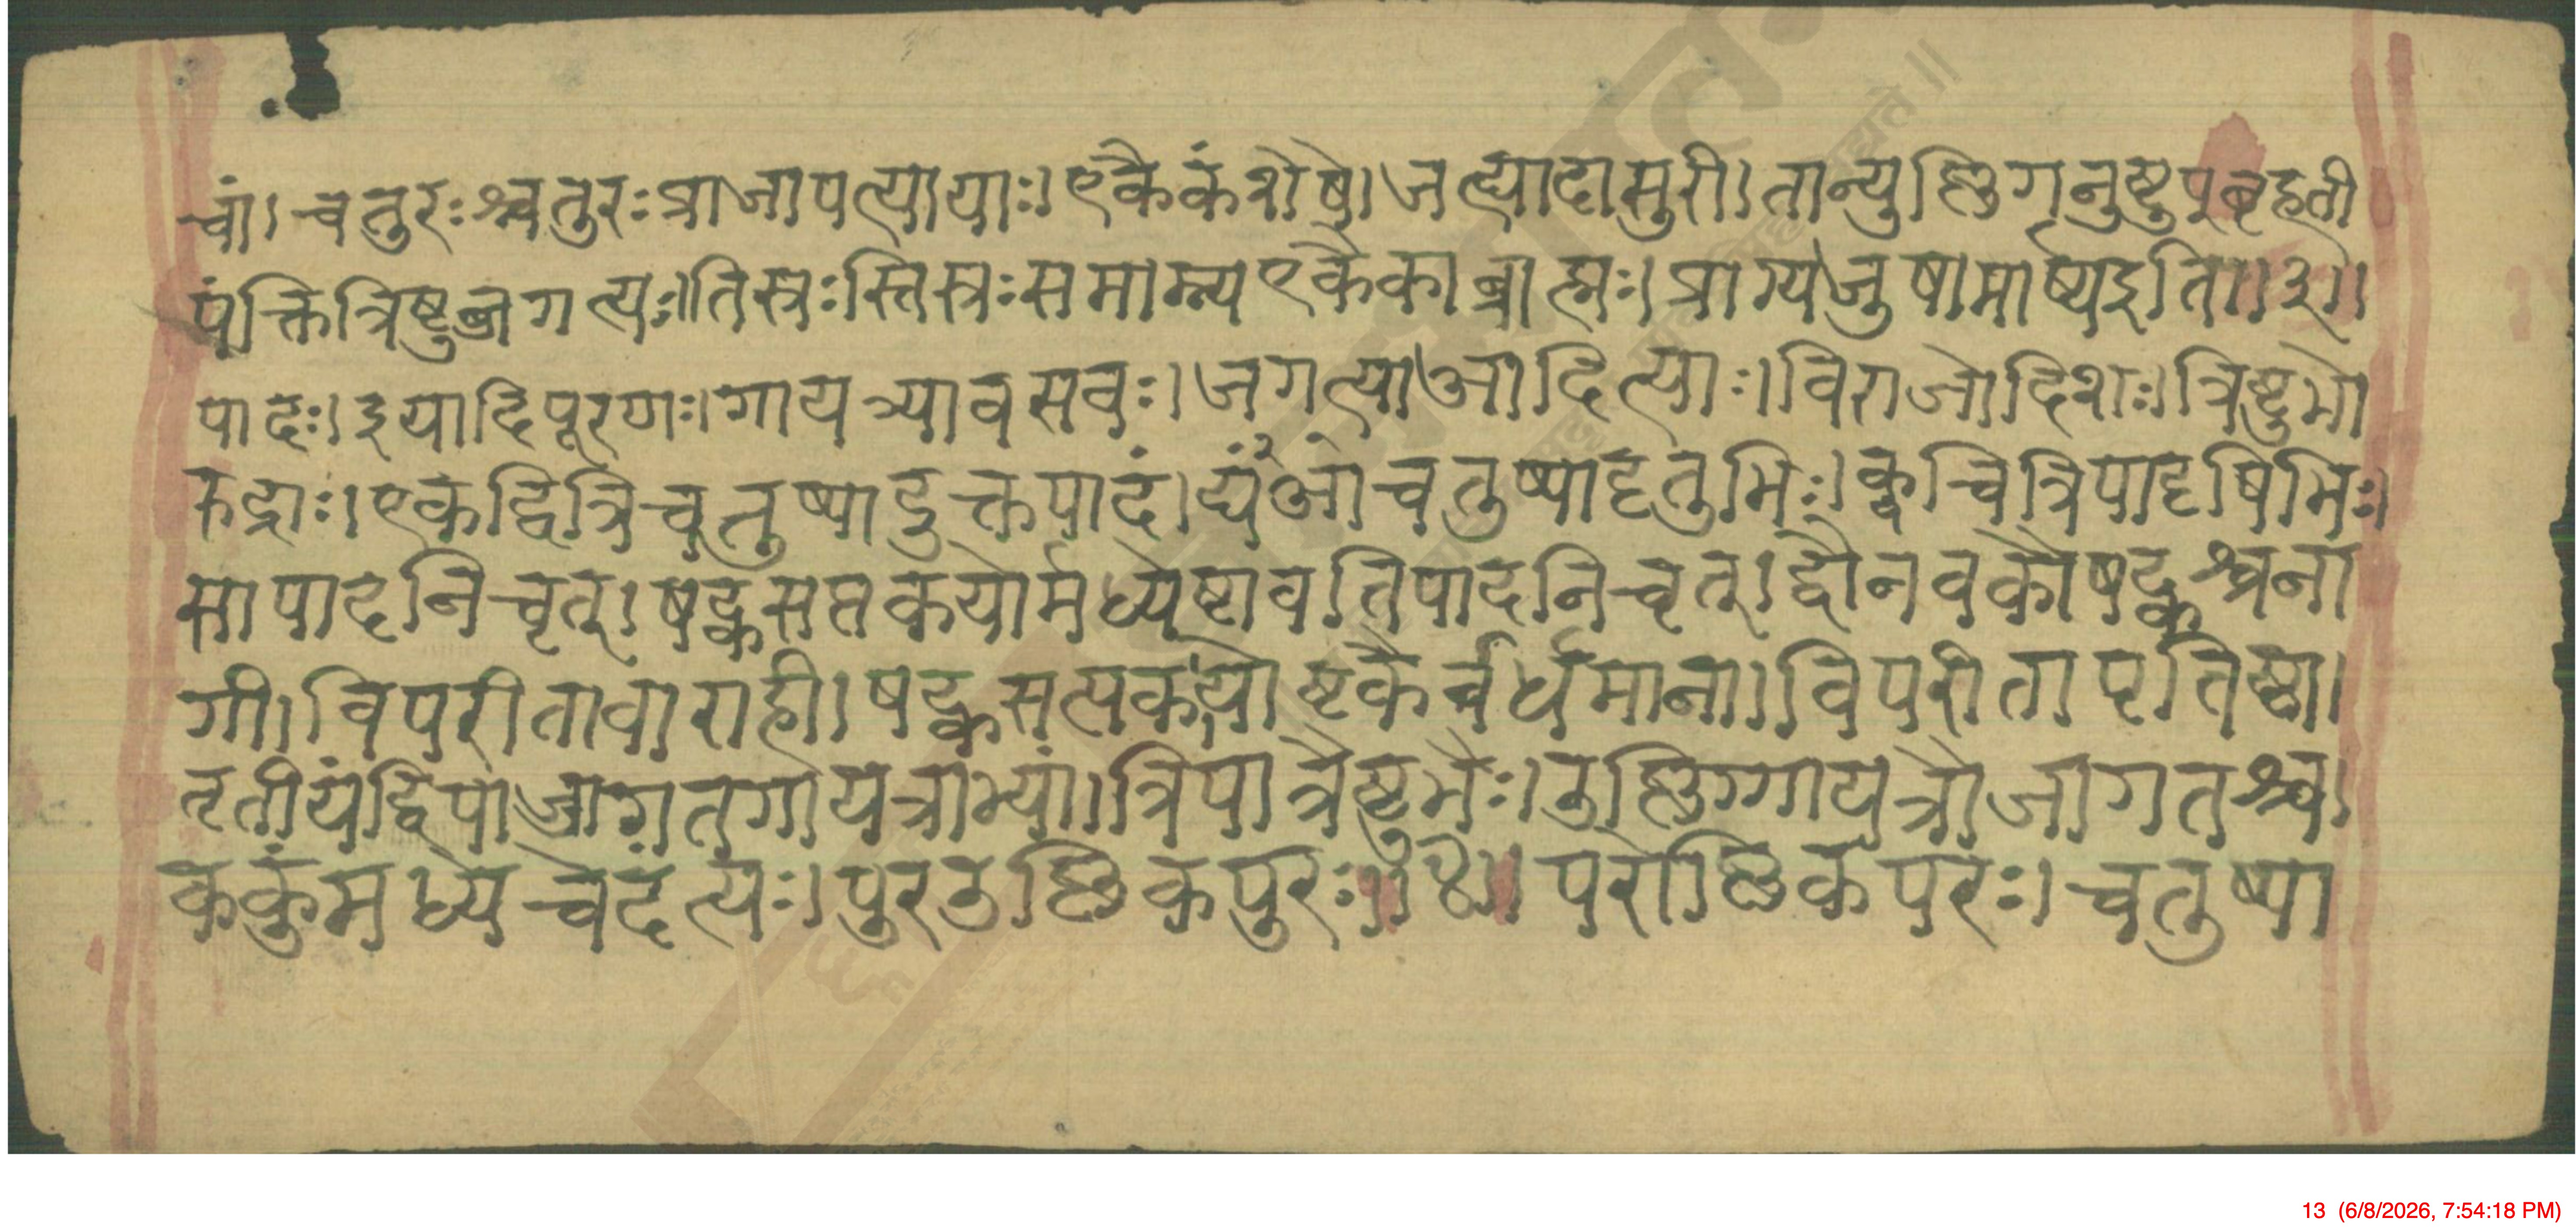 चां। चतुरःश्चतुरःप्राजापत्यायाः। एकैकंशेषे। जत्यादासुरी। तान्युष्णिगनुष्टुप्बृहती
पंक्तित्रिष्टुब्जगत्यः॥तिस्त्रःस्तिस्त्रःसमाम्न्य एकैकाब्राह्मः। प्राग्यजुषामार्ष्यइति॥३॥
पादः। इयादिपूरणः।गायत्र्यावसवः। जगत्याआदित्याः।विराजोदिशः।त्रिष्टुभो
रुद्राः। एकद्वित्रिचतुष्पादुक्तपादं। द्यंआंचतुष्पादृतुभिः।क्वचित्रिपादृषिभिः।
सापादनिचृत्। षट्कसप्तकयोर्मध्येष्टावतिपादनिचृत्। द्वौनवकौषट्कश्चना
गी। विपरीतावाराही। षट्कसत्पकयोष्टकैर्वर्धमाना। विपरीताप्रतिष्ठा।
तृतीयंद्विपाज्जागतगायत्राभ्यां।त्रिपात्रैष्टुभैः।उष्णिग्गायत्रौजागतश्च।
ककुंमध्येचेदंत्यः। पुरउष्णिकपुरः॥४॥ परोष्णिकपरः। चतुष्पा
13 (6/8/2026, 7:54:18 PM)